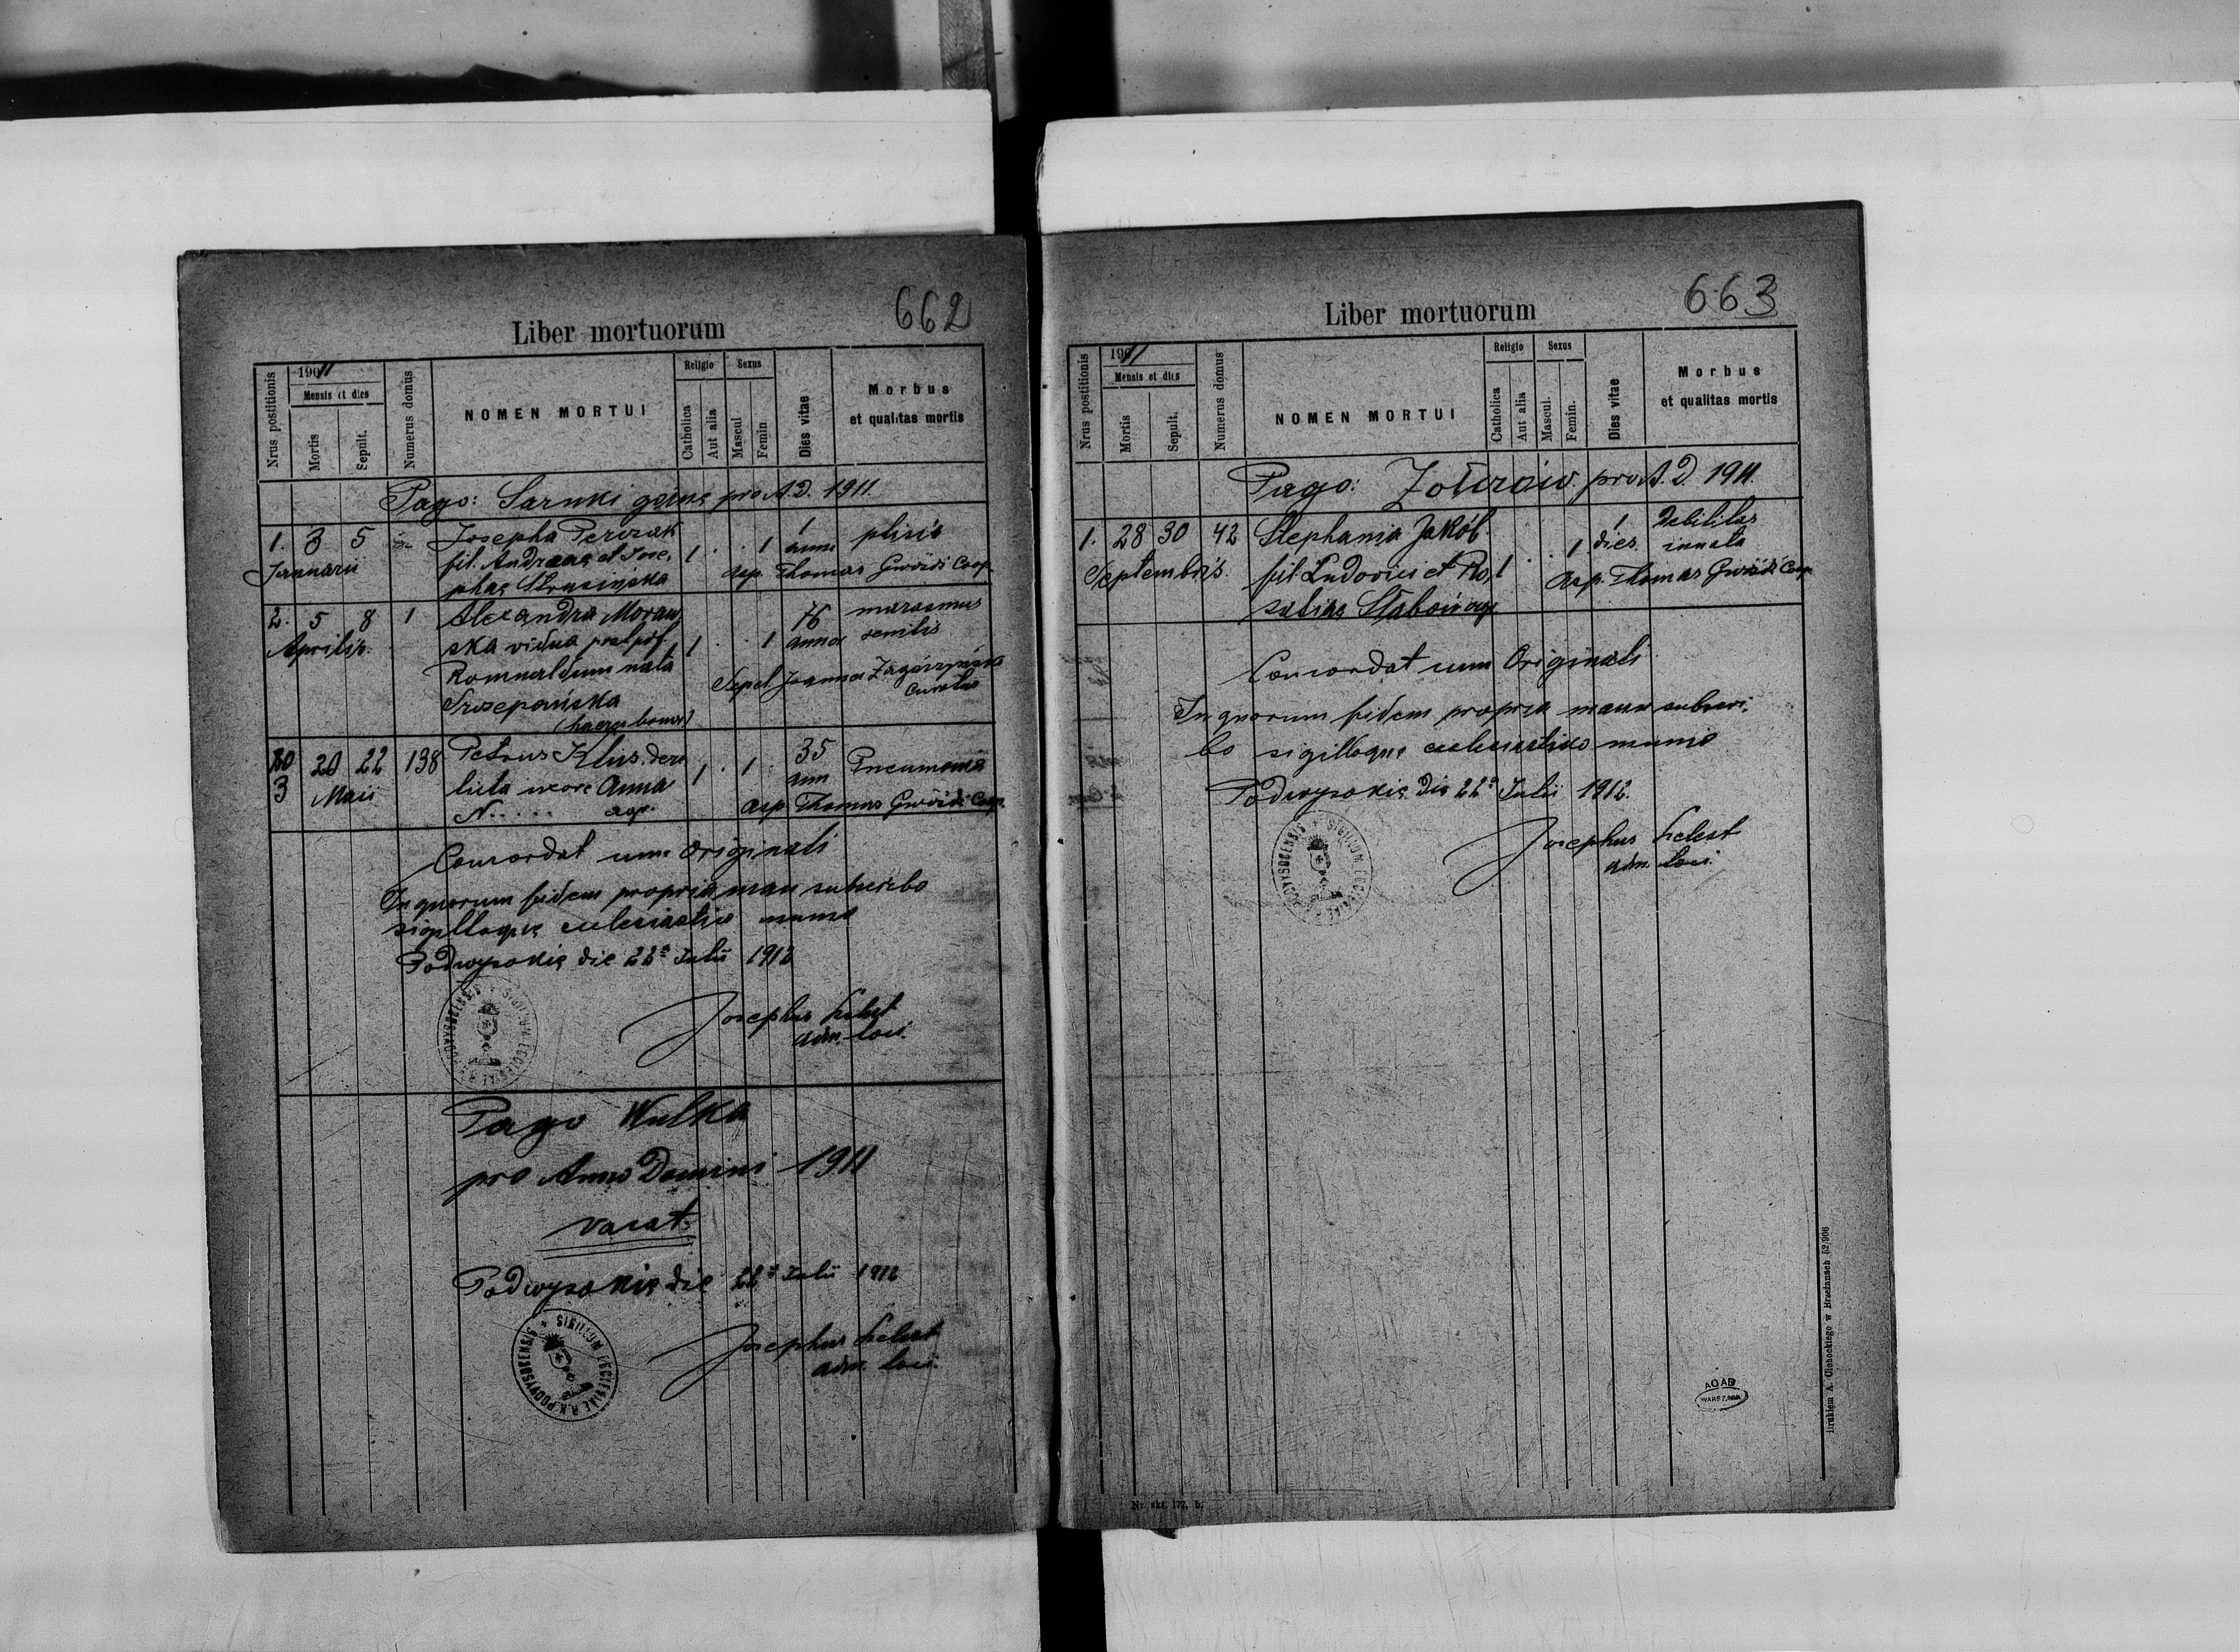 662
Liber mortuorum
Nrus postitionis
1911
Mensis et dies
Mortis
Sepult.
Numerus domus
NOMEN MORTUI
Religio
Catholica
Aut alia
Sexus
Mascul
Femin
Dies vitae
Morbus
et qualitas mortis
Pago: Sarnki górne pro A.D. 1911.
1. 3 5 Josepha Perczak 1 anni ptisis
Januarii fil. Andreae et Jose, 1 . . 1
phae Strusińska asp. Thomas Gwóźdź Coop.
2. 5 8 1 Alexandra Moraw, 76 marasmus
Aprilis. ska vidua post pdf. 1 . . 1 annor senilis
Romualdum nata Sepel. Joannes Zagórzyński
Szczepańska Curatus
(haeres bonor)
3 20 22 138 Petrus Klus. dere 35
Maii licta uxore Anna 1 . 1 . ann Pneumonia
N..... agr. asp. Thomas Gwóźdź Coop.
Concordat cum Originali
In quorum fidem propria manu subscribo
sigilloque ecclesiastico munio
Podwysokie die 22ª Julii 1912
Josephus
adm. loci.
SIGILLUM ECCLESIAE R. PODWYSOCENSIS
Pago Wulka
pro Anno Domini 1911
vacat.
Podwysokie die 22ª Julii 1912
Josephus
adm. loci.
SIGILLUM ECCLESIAE R. PODWYSOCENSIS
663
Liber mortuorum
Nrus postitionis
1911
Mensis et dies
Mortis
Sepult.
Numerus domus
NOMEN MORTUI
Religio
Catholica
Aut alia
Sexus
Mascul.
Femin.
Dies vitae
Morbus
et qualitas mortis
Pago: Żołczów pro A.D. 1911.
1. 28 30 42 Stephania Jakób. 1 Debilitas
Septembris. fil. Ludovici et Ro, 1 . . 1 dies. innata
saliae Słaboń agr asp. Thomas Gwóźdź Coop.
Concordat cum Originali
In quorum fidem propria manu subscri,
bo sigilloque ecclesiastico munio
Podwysokie die 22ª Julii 1912.
Josephus
adm. loci.
SIGILLUM ECCLESIAE R. PODWYSOCENSIS
AGAD
WARSZAWA
Drukiem A. Cichockiego w Brzeżanach 52.906
Nr. skł. 177. b.